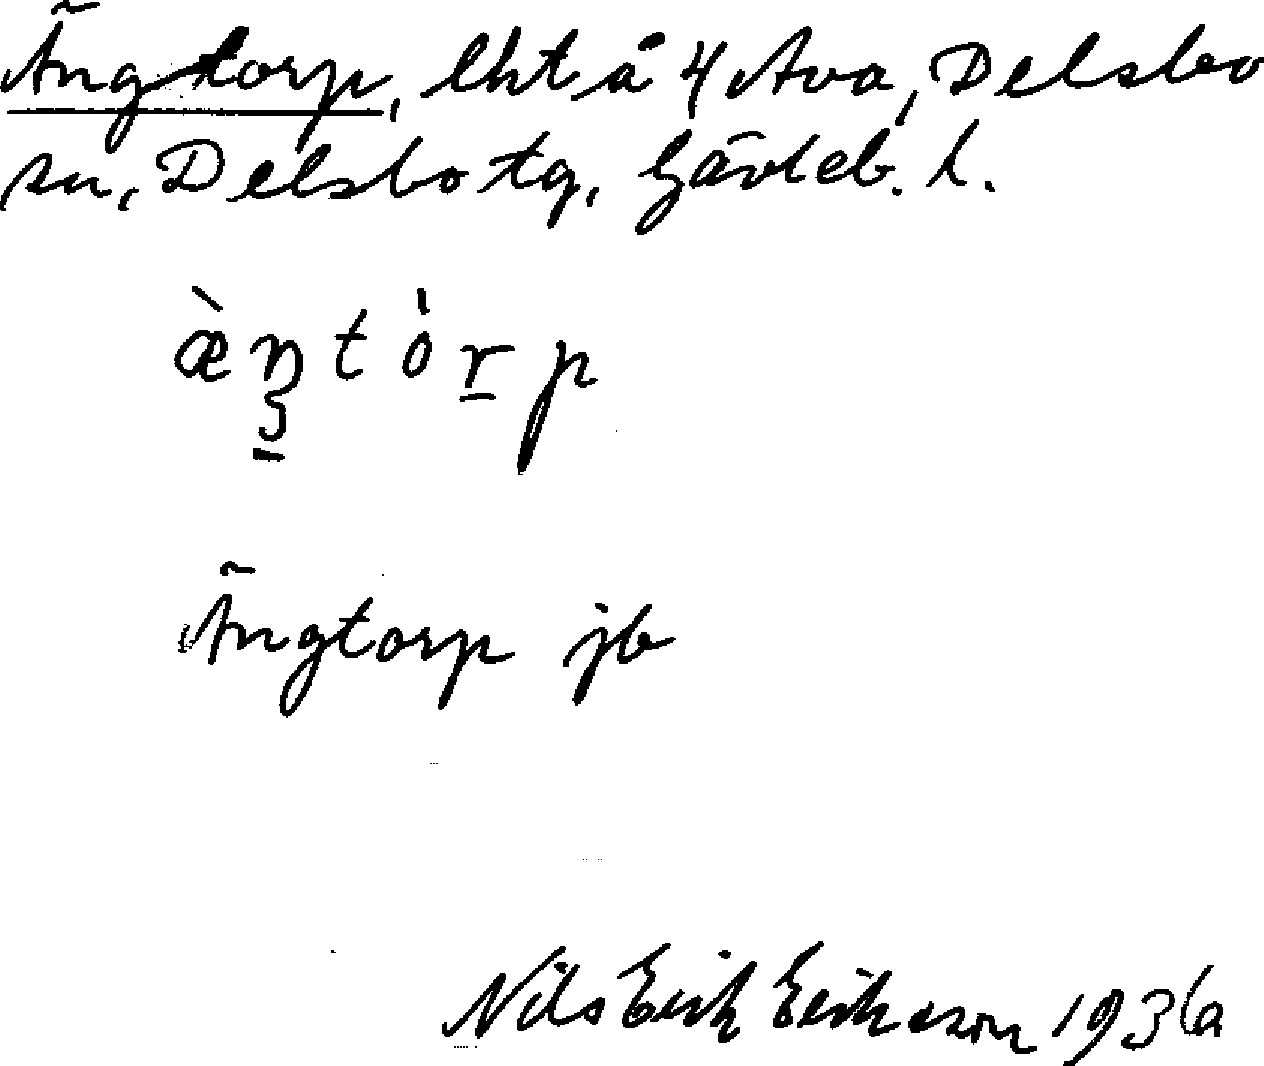 Ängtorp, lht å 4 Ava, Delsbo
sn, Delsbo tg, Gävleb. l.
Ängtorp jb
Nils Erik Erikson 1936